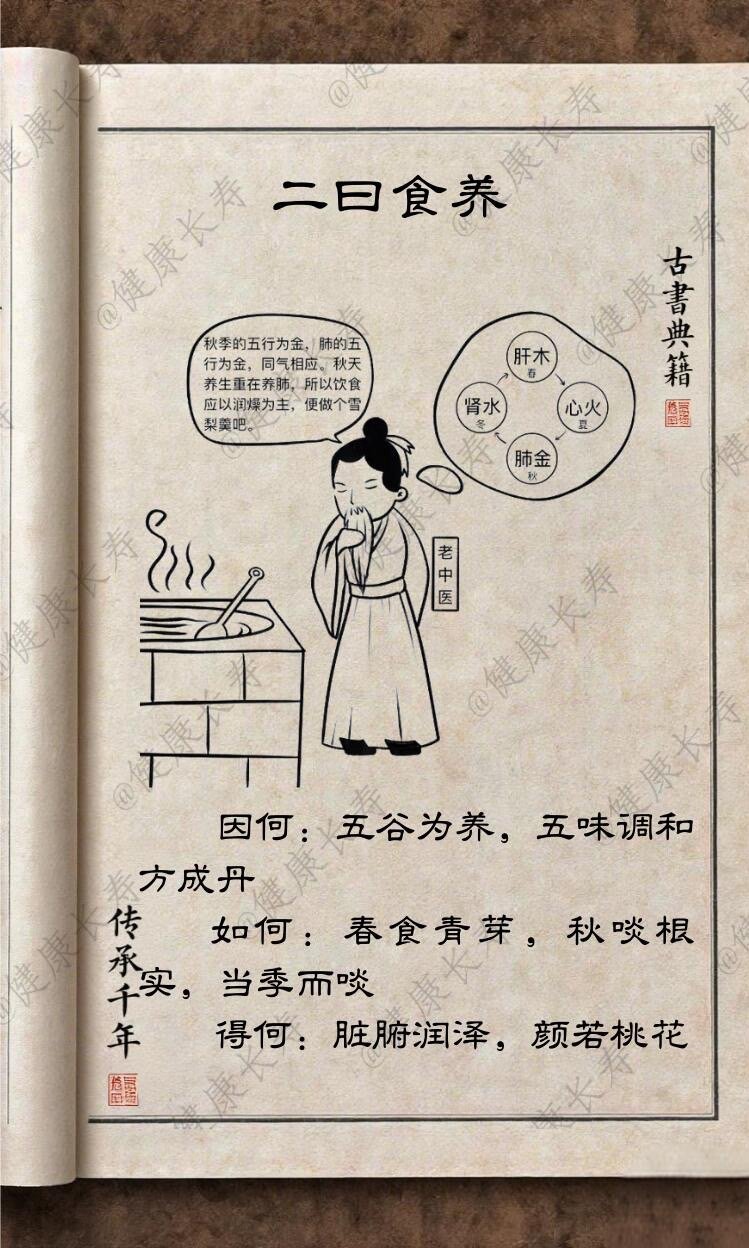 二曰食养
古書典籍
秋季的五行为金，肺的五
行为金，同气相应。秋天
养生重在养肺，所以饮食
应以润燥为主，便做个雪
梨羹吧。
肝木
春
心火
夏
肺金
秋
肾水
冬
老中医
因何：五谷为养，五味调和
方成丹
如何：春食青芽，秋啖根
实，当季而啖
得何：脏腑润泽，颜若桃花
传承千年
@健康长寿